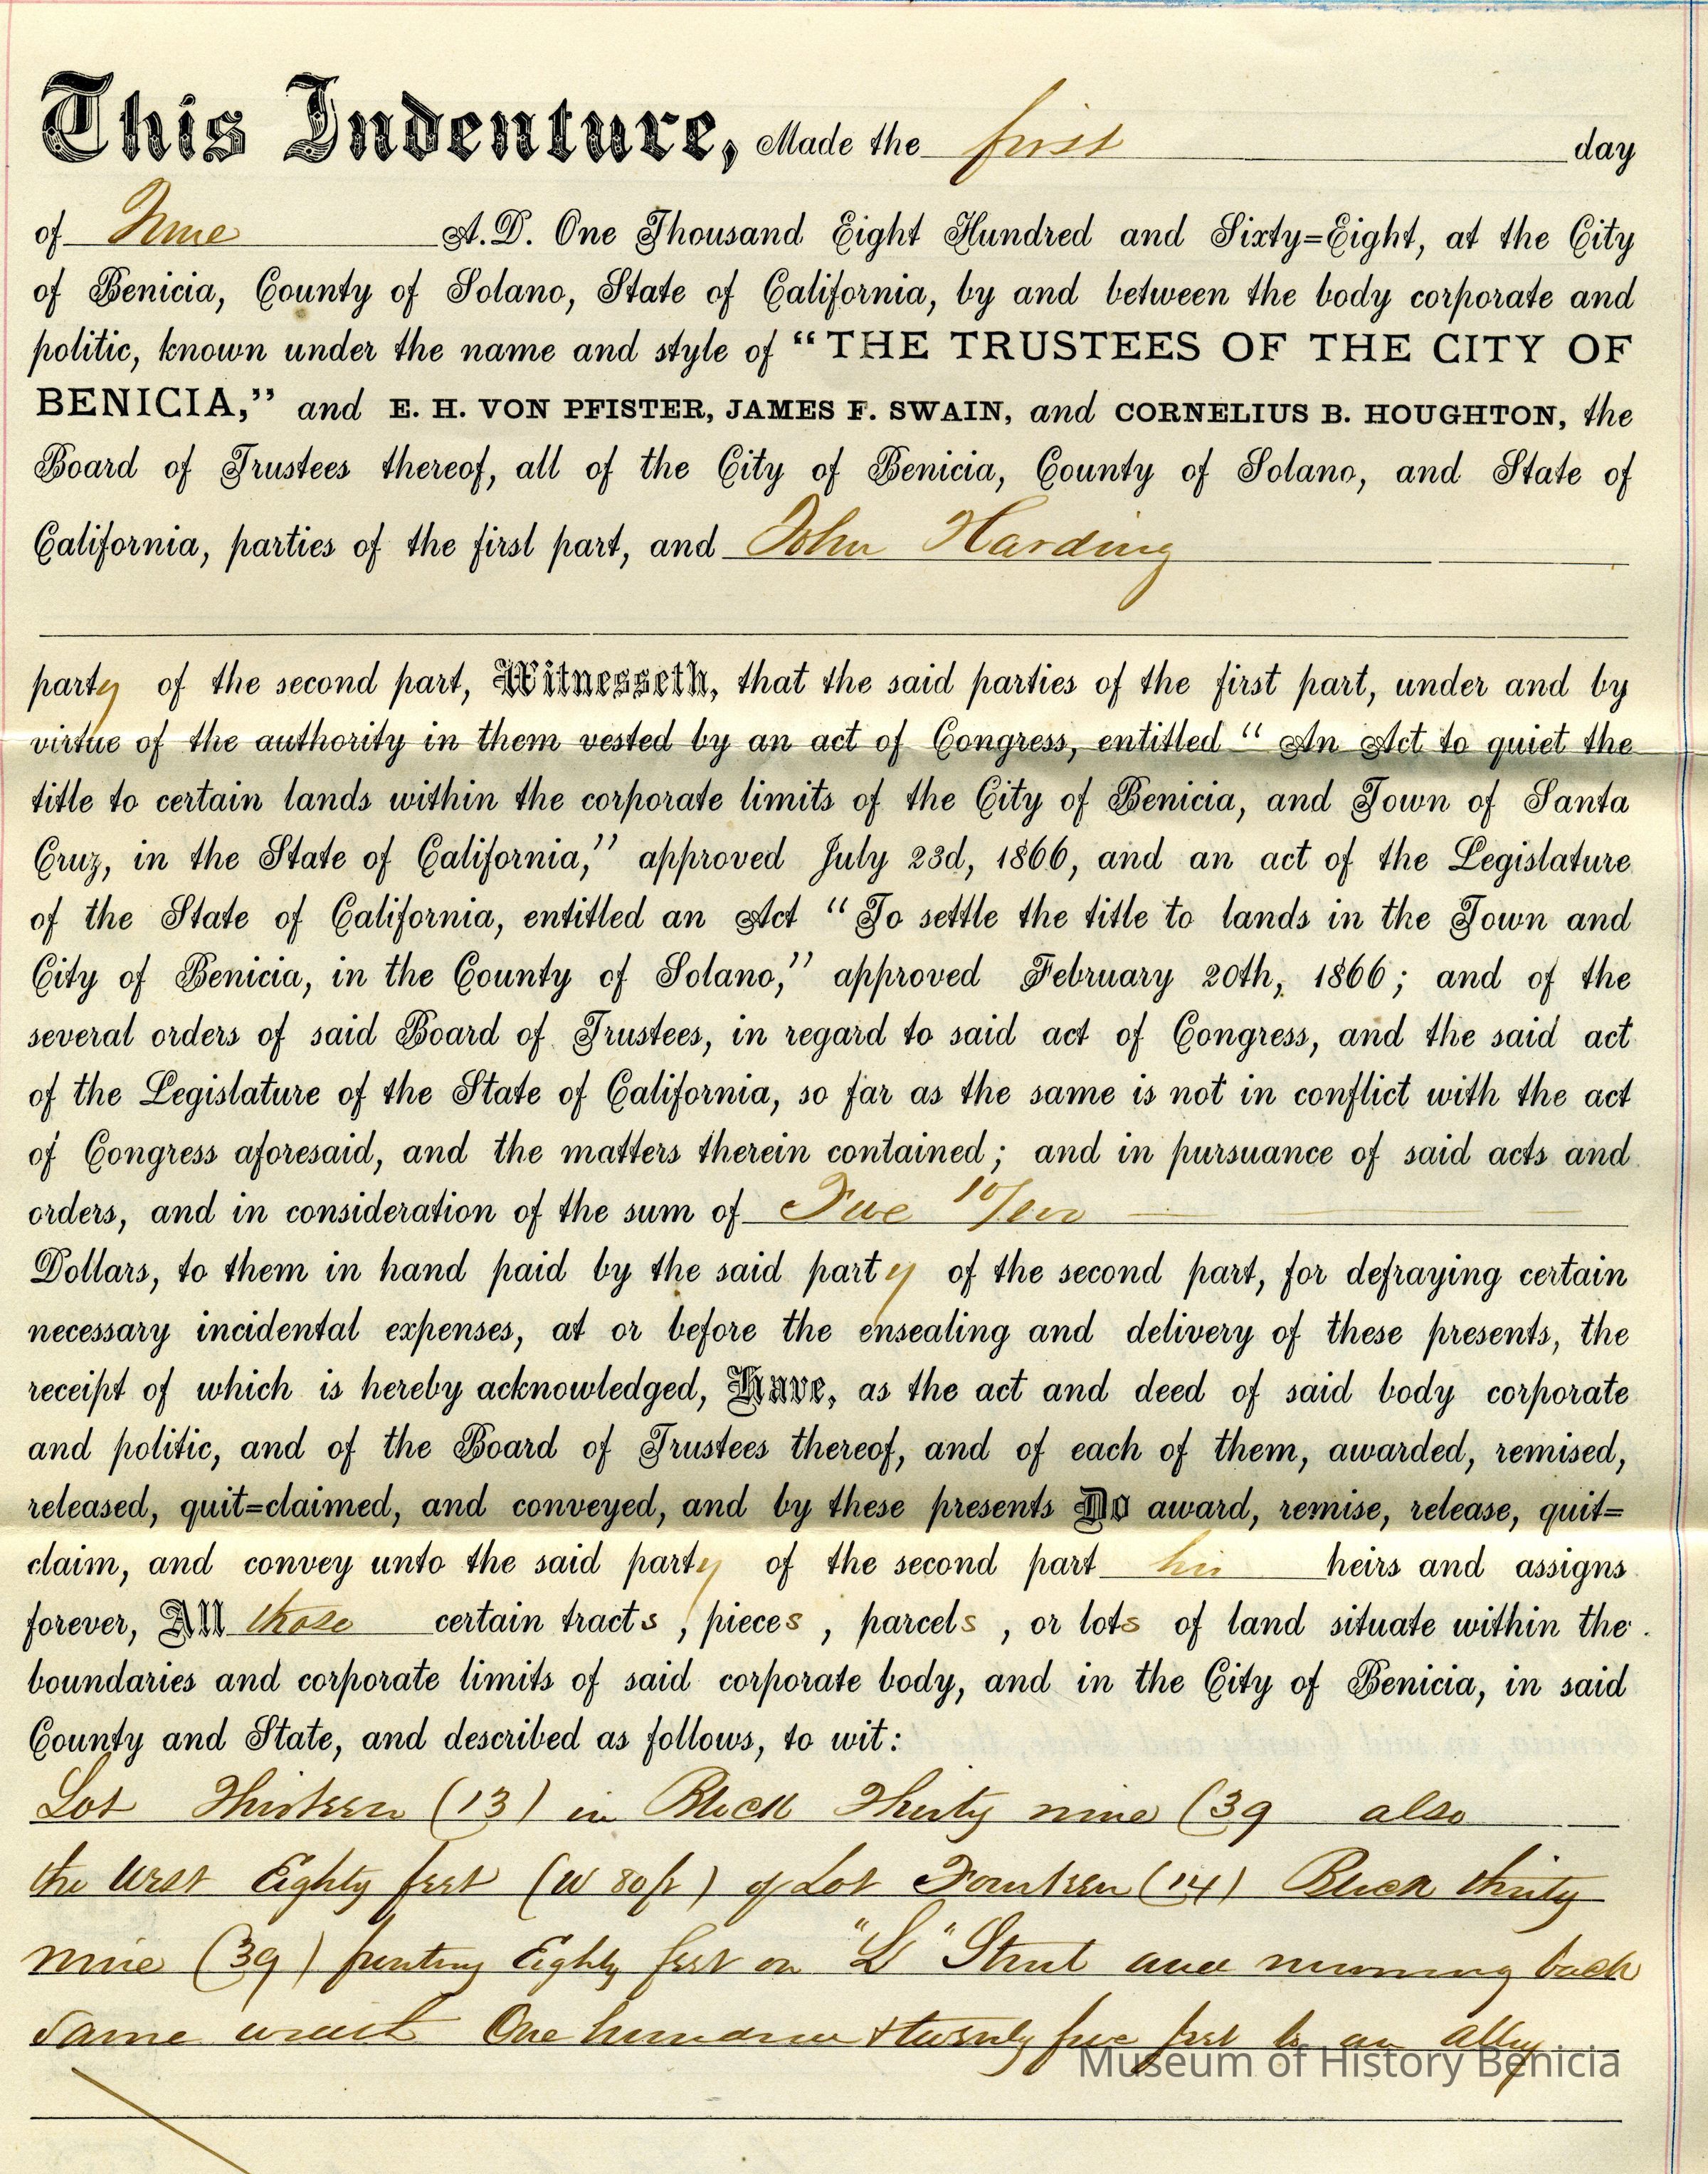 This Indenture, Made the first day
of June A.D. One Thousand Eight Hundred and Sixty=Eight, at the City
of Benicia, County of Solano, State of California, by and between the body corporate and
politic, known under the name and style of “THE TRUSTEES OF THE CITY OF
BENICIA,” and E. H. VON PFISTER, JAMES F. SWAIN, and CORNELIUS B. HOUGHTON, the
Board of Trustees thereof, all of the City of Benicia, County of Solano, and State of
California, parties of the first part, and John Harding
party of the second part, Witnesseth, that the said parties of the first part, under and by
virtue of the authority in them vested by an act of Congress, entitled “ An Act to quiet the
title to certain lands within the corporate limits of the City of Benicia, and Town of Santa
Cruz, in the State of California,” approved July 23d, 1866, and an act of the Legislature
of the State of California, entitled an Act “ To settle the title to lands in the Town and
City of Benicia, in the County of Solano,” approved February 20th, 1866; and of the
several orders of said Board of Trustees, in regard to said act of Congress, and the said act
of the Legislature of the State of California, so far as the same is not in conflict with the act
of Congress aforesaid, and the matters therein contained; and in pursuance of said acts and
orders, and in consideration of the sum of Five
Dollars, to them in hand paid by the said party of the second part, for defraying certain
necessary incidental expenses, at or before the ensealing and delivery of these presents, the
receipt of which is hereby acknowledged, Have, as the act and deed of said body corporate
and politic, and of the Board of Trustees thereof, and of each of them, awarded, remised,
released, quit=claimed, and conveyed, and by these presents Do award, remise, release, quit=
claim, and convey unto the said party of the second part his heirs and assigns
forever, All those certain tracts , pieces , parcels , or lots of land situate within the
boundaries and corporate limits of said corporate body, and in the City of Benicia, in said
County and State, and described as follows, to wit:
Lot Thirteen (13) in Block Thirty nine (39 also
the West Eighty feet (W 80 ft) of Lot Fourteen (14) Block thirty
nine (39) fronting Eighty feet on "L" Street and running back
same width One hundred & twenty five feet to an Alley
Museum of History Benicia